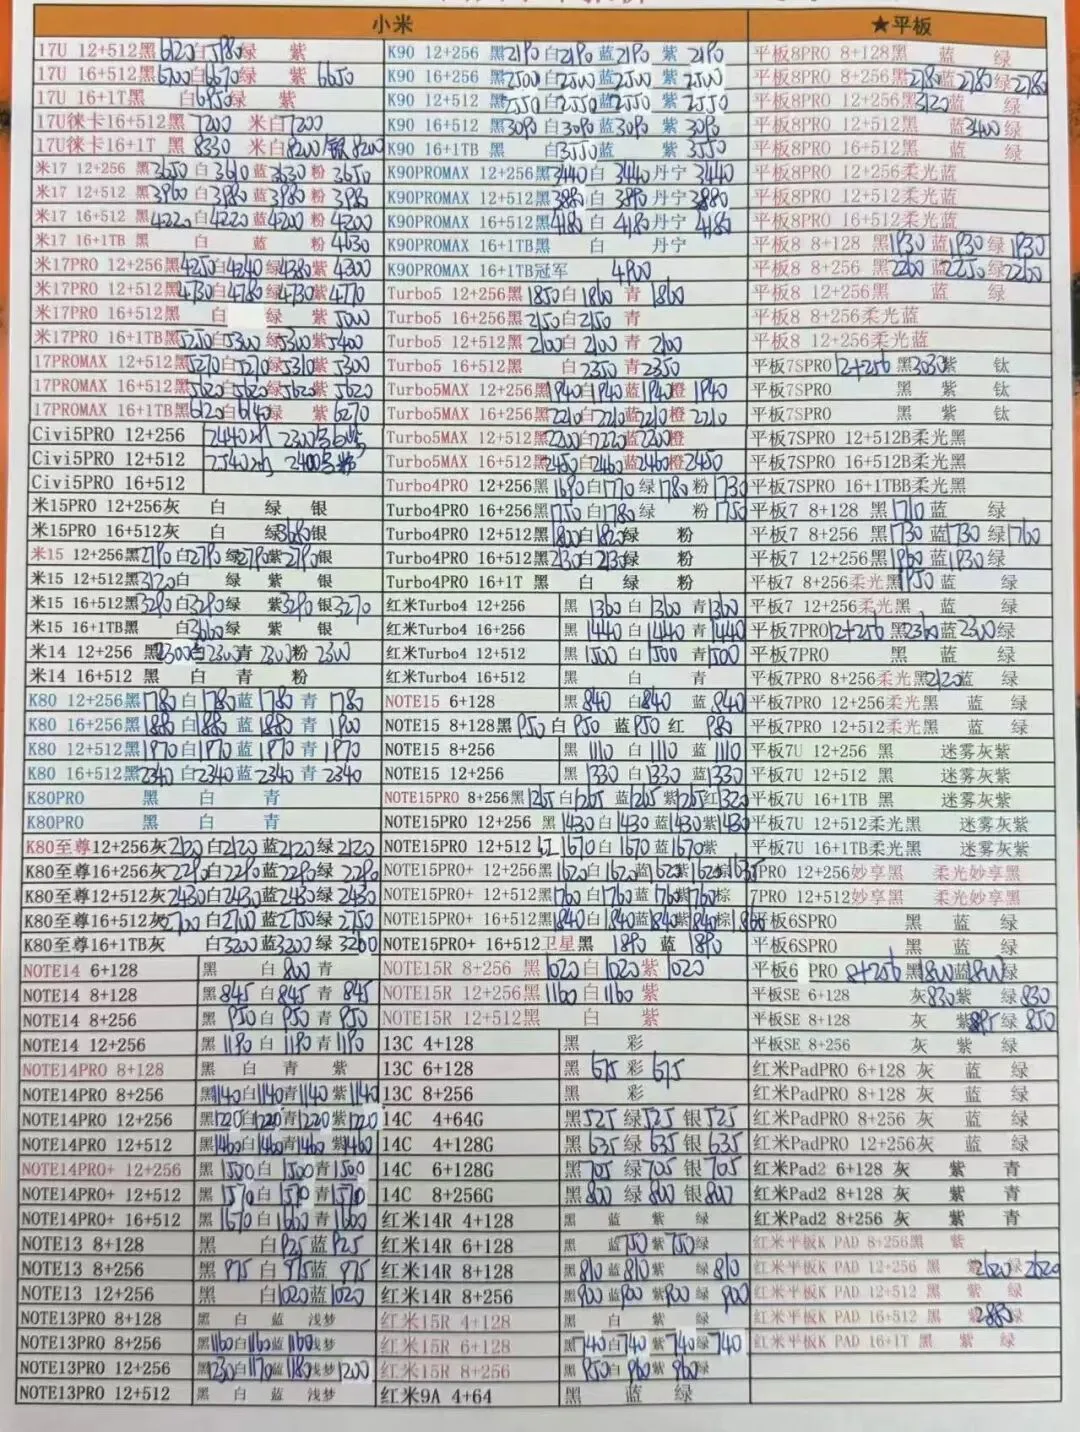 小米
17U 12+512黑6120白5980绿 紫
17U 16+512黑6700白6670绿 紫6650
17U 16+1T黑 白6950绿 紫
17U徕卡16+512黑 7200 米白7200
17U徕卡16+1T 黑 8330 米白8200/银8200
米17 12+256 黑3650白3610蓝3630粉3650
米17 12+512 黑3960白3980蓝3980粉3980
米17 16+512 黑4220白4220蓝4200粉4200
米17 16+1TB 黑 白 蓝 粉4630
米17PRO 12+256黑4250白4240绿4380紫4300
米17PRO 12+512黑4730白4780绿4730紫4770
米17PRO 16+512黑 白 绿 紫5000
米17PRO 16+1TB黑5250白5300绿5300紫5400
17PROMAX 12+512黑5270白5270绿5310紫5300
17PROMAX 16+512黑5620白5620绿5620紫5620
17PROMAX 16+1TB黑6120白6140绿 紫6270
Civi5PRO 12+256 2440 2300
Civi5PRO 12+512 2540 2400
Civi5PRO 16+512
米15PRO 12+256灰 白 绿 银
米15PRO 16+512灰 白 绿3680银
米15 12+256黑2790白2790绿2790紫2790银
米15 12+512黑3120白 绿 紫 银
米15 16+512黑3290白3290绿 紫3290银3270
米15 16+1TB黑 白3660绿 紫 银
米14 12+256 黑2300白2300青2300粉2300
米14 16+512 黑 白 青 粉
K80 12+256黑1780白1780蓝1780青1780
K80 16+256黑1880白1880蓝1880青1900
K80 12+512黑1970白1970蓝1970青1970
K80 16+512黑2340白2340蓝2340青2340
K80PRO 黑 白 青
K80PRO 黑 白 青
K80至尊12+256灰2120白2120蓝2120绿2120
K80至尊16+256灰2290白2290蓝2290绿2290
K80至尊12+512灰2430白2430蓝2430绿2430
K80至尊16+512灰2700白2700蓝2750绿2750
K80至尊16+1TB灰 白3200蓝3200绿3200
NOTE14 6+128 黑 白800青
NOTE14 8+128 黑845白845青845
NOTE14 8+256 黑950白950青950
NOTE14 12+256 黑1190白1190青1190
NOTE14PRO 8+128 黑 白 青 紫
NOTE14PRO 8+256 黑1140白1140青1140紫1140
NOTE14PRO 12+256 黑1220白1220青1220紫1220
NOTE14PRO 12+512 黑1460白1460青1460紫1460
NOTE14PRO+ 12+256 黑1500白1500青1500
NOTE14PRO+ 12+512 黑1570白1570青1570
NOTE14PRO+ 16+512 黑1670白1660青1600
NOTE13 8+128 黑 白925蓝925
NOTE13 8+256 黑975白975蓝975
NOTE13 12+256 黑 白1020蓝1020
NOTE13PRO 8+128 黑 白 蓝 浅梦
NOTE13PRO 8+256 黑1160白1160蓝1160浅梦
NOTE13PRO 12+256 黑1230白1170蓝1180浅梦1200
NOTE13PRO 12+512 黑 白 蓝 浅梦
K90 12+256 黑2190白2190蓝2190紫2190
K90 16+256 黑2500白2500蓝2500紫2500
K90 12+512 黑2550白2550蓝2550紫2550
K90 16+512 黑3090白3090蓝3090紫3090
K90 16+1TB黑 白3550蓝 紫3550
K90PROMAX 12+256黑3440白3440丹宁3440
K90PROMAX 12+512黑3880白3890丹宁3880
K90PROMAX 16+512黑4180白4180丹宁4180
K90PROMAX 16+1TB黑 白 丹宁
K90PROMAX 16+1TB冠军 4900
Turbo5 12+256黑1850白1860青1860
Turbo5 16+256黑2150白2150青
Turbo5 12+512黑2100白2100青2100
Turbo5 16+512黑 白2350青2350
Turbo5MAX 12+256黑1940白1940蓝1940橙1940
Turbo5MAX 16+256黑2210白2210蓝2210橙2210
Turbo5MAX 12+512黑2200白2220蓝2200橙
Turbo5MAX 16+512黑2450白2460蓝2460橙2450
Turbo4PRO 12+256黑1690白1770绿1780粉1730
Turbo4PRO 16+256黑1750白1780绿 粉1750
Turbo4PRO 12+512黑1800白1820绿 粉
Turbo4PRO 16+512黑2130白2130绿 粉
Turbo4PRO 16+1T 黑 白 绿 粉
红米Turbo4 12+256 黑1360白1360青1360
红米Turbo4 16+256 黑1440白1440青1440
红米Turbo4 12+512 黑1500白1500青1500
红米Turbo4 16+512 黑 白 青
NOTE15 6+128 黑840白840蓝840
NOTE15 8+128黑950白950蓝950红980
NOTE15 8+256 黑1110白1110蓝1110
NOTE15 12+256 黑1330白1330蓝1330
NOTE15PRO 8+256黑1265白1265蓝1265紫1265红1320
NOTE15PRO 12+256 黑1430白1430蓝1430紫1430
NOTE15PRO 12+512 红1670白1670蓝1670紫
NOTE15PRO+ 12+256黑1620白1620蓝1625紫1620棕1635
NOTE15PRO+ 12+512黑1760白1760蓝1760紫1760棕
NOTE15PRO+ 16+512黑1840白1840蓝1840紫1840棕1860
NOTE15PRO+ 16+512卫星黑 1890 蓝 1890
NOTE15R 8+256 黑1020白1020紫1020
NOTE15R 12+256黑1160白1160紫
NOTE15R 12+512黑 白 紫
13C 4+128 黑 彩
13C 6+128 黑675彩675
13C 8+256 黑 彩
14C 4+64G 黑525绿525银525
14C 4+128G 黑635绿635银635
14C 6+128G 黑705绿705银705
14C 8+256G 黑800绿800银800
红米14R 4+128 黑 蓝 紫 绿
红米14R 6+128 黑 蓝750紫750绿
红米14R 8+128 黑810蓝810紫 绿810
红米14R 8+256 黑900蓝900紫900绿900
红米15R 4+128 黑 白 紫 绿
红米15R 6+128 黑740白740紫740绿740
红米15R 8+256 黑950白960紫960绿
红米9A 4+64 黑 蓝 绿
★平板
平板8PRO 8+128黑 蓝 绿
平板8PRO 8+256黑2780蓝2780绿2780
平板8PRO 12+256黑3120蓝 绿
平板8PRO 12+512黑 蓝3400绿
平板8PRO 16+512黑 蓝 绿
平板8PRO 12+256柔光蓝
平板8PRO 12+512柔光蓝
平板8PRO 16+512柔光蓝
平板8 8+128 黑1930蓝1930绿1930
平板8 8+256 黑2260蓝2250绿2260
平板8 12+256黑 蓝 绿
平板8 8+256柔光蓝
平板8 12+256柔光蓝
平板7SPRO 12+256 黑3030紫 钛
平板7SPRO 黑 紫 钛
平板7SPRO 黑 紫 钛
平板7SPRO 12+512B柔光黑
平板7SPRO 16+512B柔光黑
平板7SPRO 16+1TBB柔光黑
平板7 8+128 黑1710蓝 绿
平板7 8+256 黑1730蓝1730绿1760
平板7 12+256黑1960蓝1930绿
平板7 8+256柔光黑1950蓝 绿
平板7 12+256柔光黑 蓝 绿
平板7PRO12+256黑2360蓝2300绿
平板7PRO 黑 蓝 绿
平板7PRO 8+256柔光黑2120蓝 绿
平板7PRO 12+256柔光黑 蓝 绿
平板7PRO 12+512柔光黑 蓝 绿
平板7U 12+256 黑 迷雾灰紫
平板7U 12+512 黑 迷雾灰紫
平板7U 16+1TB 黑 迷雾灰紫
平板7U 12+512柔光黑 迷雾灰紫
平板7U 16+1TB柔光黑 迷雾灰紫
7PRO 12+256妙享黑 柔光妙享黑
7PRO 12+512妙享黑 柔光妙享黑
平板6SPRO 黑 蓝 绿
平板6SPRO 黑 蓝 绿
平板6 PRO 8+256黑1800蓝1800绿
平板SE 6+128 灰830紫 绿830
平板SE 8+128 灰 紫895绿850
平板SE 8+256 灰 紫 绿
红米PadPRO 6+128 灰 蓝 绿
红米PadPRO 8+128 灰 蓝 绿
红米PadPRO 8+256 灰 蓝 绿
红米PadPRO 12+256灰 蓝 绿
红米Pad2 6+128 灰 紫 青
红米Pad2 8+128 灰 紫 青
红米Pad2 8+256 灰 紫 青
红米平板K PAD 8+256黑 紫
红米平板K PAD 12+256 黑 紫2620绿2620
红米平板K PAD 12+512 黑 紫 绿
红米平板K PAD 16+512 黑 紫2880绿
红米平板K PAD 16+1T 黑 紫 绿